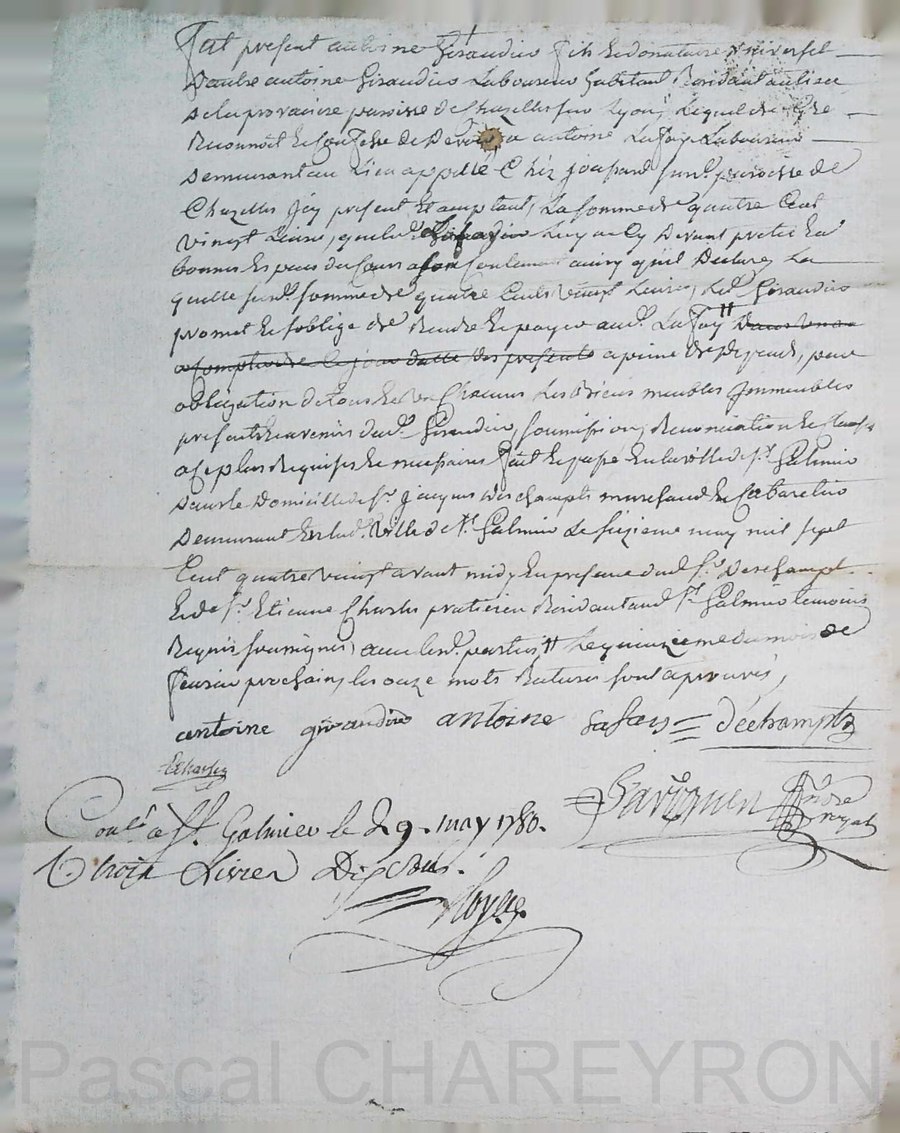 fut present antoine Giraudier fils et donataire universel
d'autre antoine Giraudier Laboureur habitant Residant au lieu
de la paroisse de Chazelles sur Lyon, Lequel de gre
Reconnoit et Confesse de devoir a antoine Lafay Laboureur
demeurant au Lieu appellé Chez joupard sus.d paroisse de
Chazelles Icy present et acceptant, La somme de quatre Cent
vingt Livres, que led. Luy a Cy devant pretée en
bonnes especes du Cours ainsy qu'il Declare, La
quelle sus.d somme de quatre Cents vingt Livres, led. Giraudier
promet et s'oblige de Rendre et payer aud. Lafay dans
a compter de le jour datte des presentes a peine de depends, pour
obligation de tous et un Chacuns Les Biens meubles Immeubles
presents et avenir dud. Giraudier, soumission, Renonciation et clauses
a ce plus Requises et necessaires fait et passé en la ville de St. Galmier
dans le Domicille de Sr. jacques deschampts marchand et Cabaretier
demeurant en lad. Ville de St. Galmier Le seizieme may mil sept
Cent quatre vingt avant midy en presence dud. Sr. Deschampt
et de Sr. Etienne Charles praticien Residant aud. St. Galmier temoins
Requis soussignes, avec lesd. parties Le quinzieme du mois de
fevrier prochain, les onze mots Ratures sont aprouvés,
antoine giraudier antoine lafay déchampts
Charles
Contlé a St. Galmier le 29. may 1780.
R. trois Livres Dix sous.
Royer
Pascal CHAREYRON